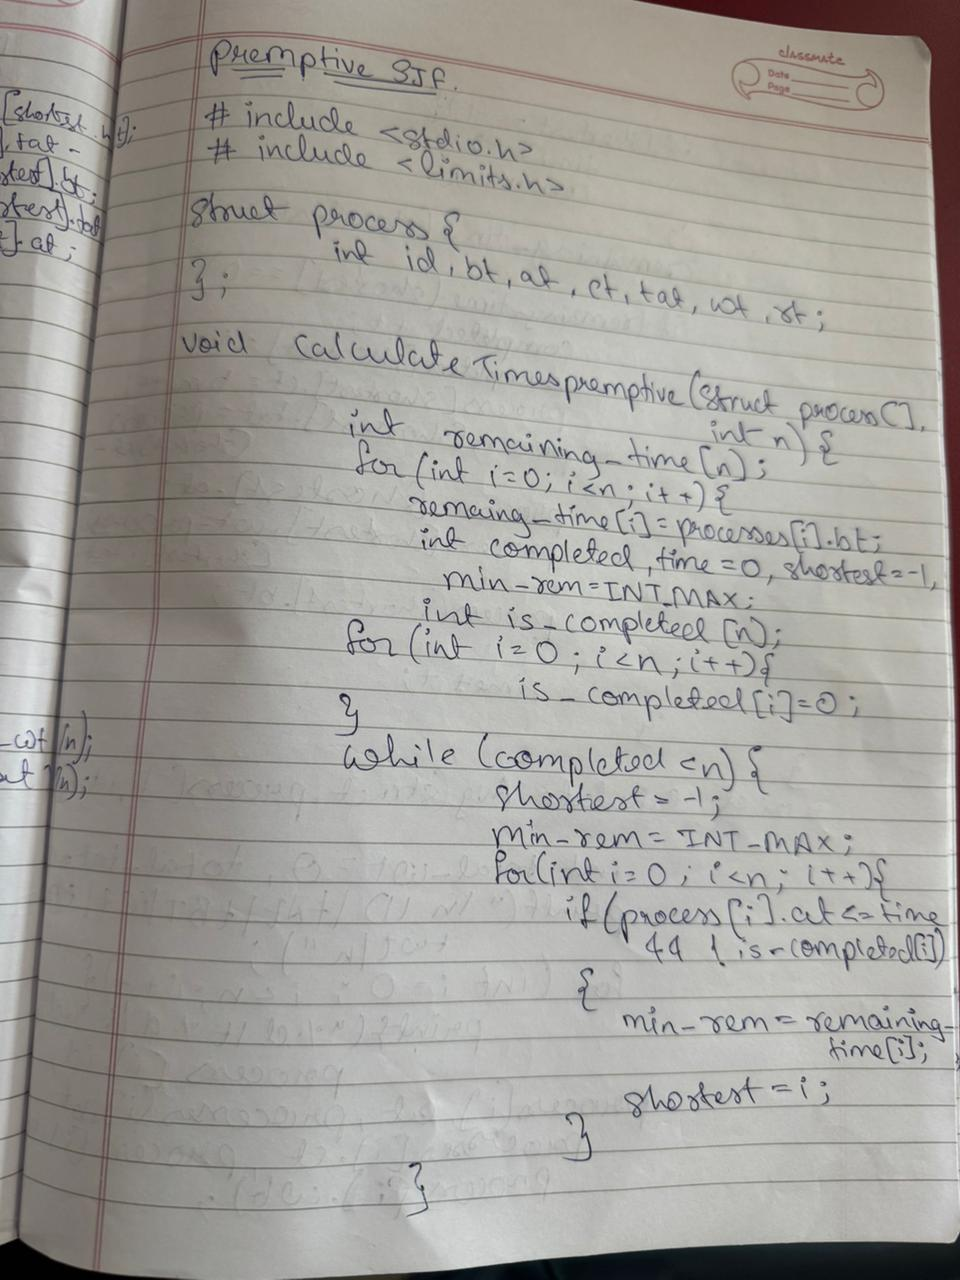 classmate
Date
Page
premptive SJF.
# include <stdio.h>
# include <limits.h>
struct process {
int id, bt, at, ct, tat, wt, rt;
};
void calculate Timespremptive (struct process[],
int n) {
int remaining_time [n];
for (int i=0; i<n; i++) {
remaing_time[i] = processes[i].bt;
int completed, time=0, shortest=-1,
min-rem=INT_MAX;
int is_completed [n];
for (int i=0; i<n; i++){
is_completed[i]=0;
}
while (completed <n) {
shortest = -1;
min-rem = INT_MAX;
for(int i=0; i<n; i++){
if (process[i].at <= time
&& ! is-completed[i])
{
min-rem = remaining-
time[i];
shortest = i;
}
}
[shortest
tat -
].bt;
].tat
].at;
-wt /n);
/n);